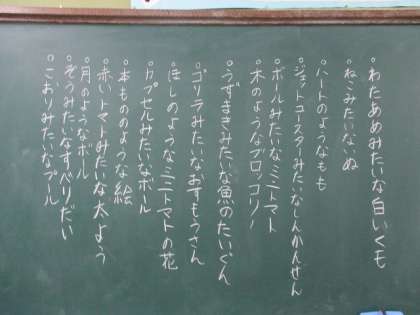 ・わたあめみたいな白いくも
・ねこみたいないぬ
・ハートのようなもも
・ジェットコースターみたいなしんかんせん
・ボールみたいなミニトマト
・木のようなブロッコリー
・うずまきみたいな魚のたいぐん
・ゴリラみたいなおすもうさん
・ほしのようなミニトマトの花
・カプセルみたいなボール
・本もののような絵
・赤いトマトみたいな太よう
・月のようなボール
・ぞうみたいなすべりだい
・こおりみたいなプール